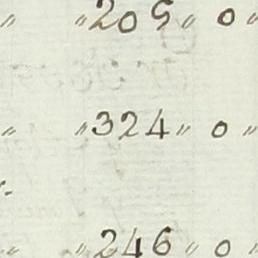 " " 205 " 0 "
" " 324 " 0 "
" " 246 " 0 "